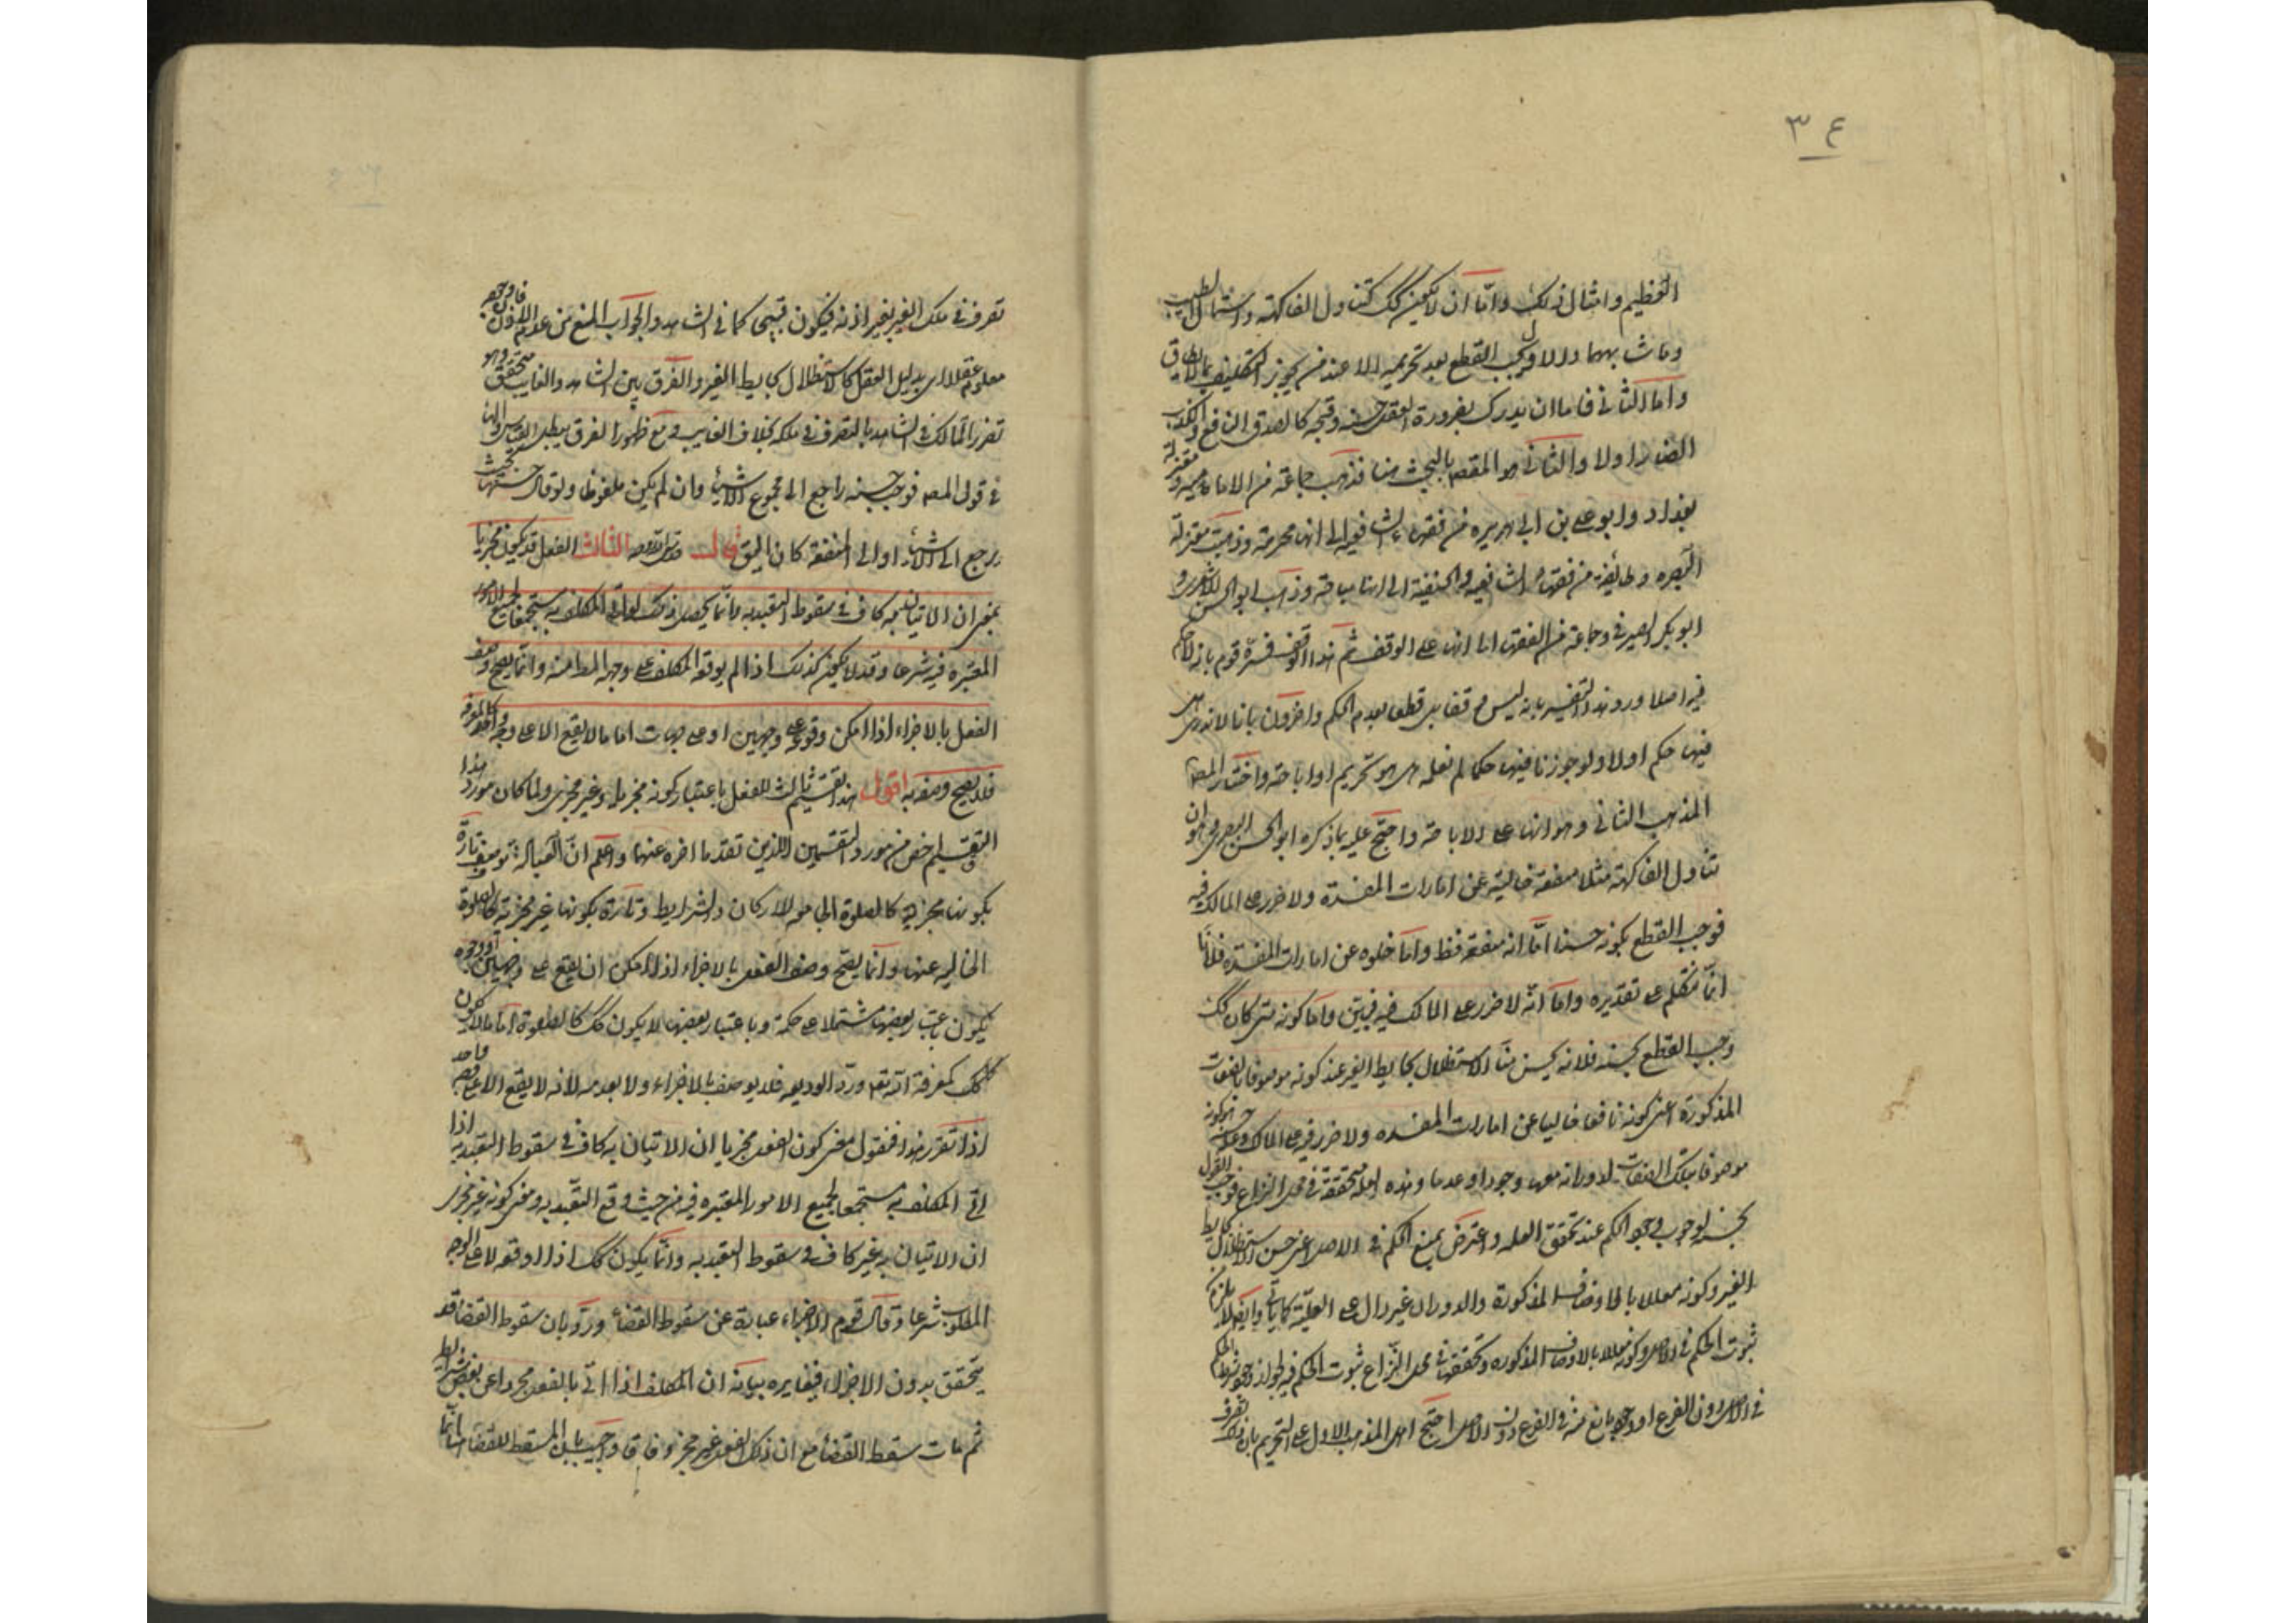 ٣٤
العظيم وامثال ذلك واما ان لا يكون كك كتناول الفاكهة واستشمال الطيب
وما شابههما والاول يجب القطع بعدم تحريمه الا عند من يجوز التكليف بما لا يطاق
واما الثاني فاما ان يدرك بضرورة العقل حسنه وقبحه كالصدق النافع والكذب
الضار اولا والثاني هو المقصد بالبحث هنا فذهب جماعة من الامامية ومعتزلة
بغداد وابو علي بن ابي هريره من فقهاء الشافعيه الى انها محرمة وذهبت معتزلة
البصره وطائفة من فقهاء الشافعيه والحنفية الى انها مباحة وذهب ابو الحسن الاشعري و
ابو بكر الصيرفي وجماعة من الفقهاء الى انها على الوقف ثم هذا الوقف فسره قوم بانه لا حكم
فيها اصلا ورد هذا التفسير بانه ليس وقفا بل قطعا بعدم الحكم واخرون بانا لا ندري هل
فيها حكم اولا ولو جوزنا فيها حكما لم نعلم هل هو تحريم او اباحة واختار المصه
المذهب الثاني وهو انها على الاباحة واحتج عليه بما ذكره ابو الحسن البصري وهو ان
تناول الفاكهة مثلا منفعة خالية عن امارات المفسدة ولا ضرر على المالك فيه
فوجب القطع بكونه حسنا اما انه منفعة فظ واما خلوه عن امارات المفسدة فلانا
انما نتكلم على تقديره واما انه لا ضرر على المالك فيه فبين واما كونه متى كان كك
وجب القطع بحسنه فلانه يحسن منا الاستظلال بحايط الغير عند كونه موصوفا بالصفات
المذكورة اعنى كونه نافعا خاليا عن امارات المفسده ولا ضرر فيه على المالك وعلة حسنه كونه
موصوفا بتلك الصفات لدورانه معها وجودا وعدما وهذه العلة متحققة في محل النزاع فوجب القول
بحسنه لوجوب وجود الحكم عند تحقق العله واعترض بمنع الحكم في الاصل اعنى حسن الاستظلال بحايط
الغير وكونه معللا بالاوصاف المذكورة والدوران غير دال على العلية كما ياتي وايضا لا يلزم من
ثبوت الحكم في الاصل وكونه معللا بالاوصاف المذكوره وتحققها في محل النزاع ثبوت الحكم فيه لجواز وجود شرط الحكم
في الاصل دون الفرع او وجود مانع منه في الفرع دون الاصل احتج اهل المذهب الاول على التحريم بان ذلك تصرف
تصرف في ملك الغير بغير اذنه فيكون قبيحا كما في الشاهد والجواب المنع من عدم الاذن فان وجه
معلوم عقلا اى بدليل العقل كالاستظلال بحايط الغير والفرق بين الشاهد والغايب متحقق وهو
تضرر المالك في الشاهد بالتصرف في ملكه بخلاف الغايب ومع ظهور الفرق يبطل القياس والهاء
في قول المصه فوجب حسنه راجع الى مجموع الاشياء وان لم يكن ملفوظا ولو قال حسنها بحيث
يرجع الى الاشياء او الى المنفعة كان اليق قال الثالث الفعل قد يكون مجزيا
بمعنى ان الاتيان به كاف في سقوط التعبد به وانما يحصل ذلك لو اتى المكلف به مستجمعا لجميع الامور
المعتبره فيه شرعا وقد لا يكون كذلك اذا لم يوقعه المكلف على وجهه المط منه وانما يصح وصف
الفعل بالاجزاء اذا امكن وقوعه على وجهين او على جهات اما ما لا يقع الا على وجه واحد كالمعرفه
فلا يصح وصفه به اقول هذا تقسيم ثالث للفعل باعتبار كونه مجزيا وغير مجزى ولما كان مورد هذا
التقسيم اخص من مورد التقسيمين اللذين تقدما اخره عنهما واعلم ان العبادة توصف تارة
بكونها مجزية كالصلوة الجامعه للاركان والشرايط وتارة بكونها غير مجزية كالصلوة
الخاليه عنها وانما يصح وصف الفعل بالاجزاء اذا امكن ان يقع على وجهين او وجوه
يكون باعتبار بعضها مشتملا على حكمة وباعتبار بعضها لا يكون كك كالصلوة اما ما لا يكون
كك كمعرفة الله تعه ورد الوديعه فلا يوصف بالاجزاء ولا بعدمه لانه لا يقع الا على وجه واحد
اذا تقرر هذا فنقول معنى كون الفعل مجزيا ان الاتيان به كاف في سقوط التعبد به اذا
اتى المكلف به مستجمعا لجميع الامور المعتبره فيه من حيث وقع التعبد به ومعنى كونه غير مجزى
ان الاتيان به غير كاف في سقوط التعبد به وانما يكون كك اذا اوقعه لا على الوجه
المطلوب شرعا وقال قوم الاجزاء عبارة عن سقوط القضاء ورد بان سقوط القضاء قد
يتحقق بدون الاجزاء فيغايره بيانه ان المكلف اذا اتى بالفعل مجردا عن بعض شرايطه
ثم مات سقط القضاء مع ان ذلك الفعل غير مجز وفاقا واجيب بان المسقط للقضاء